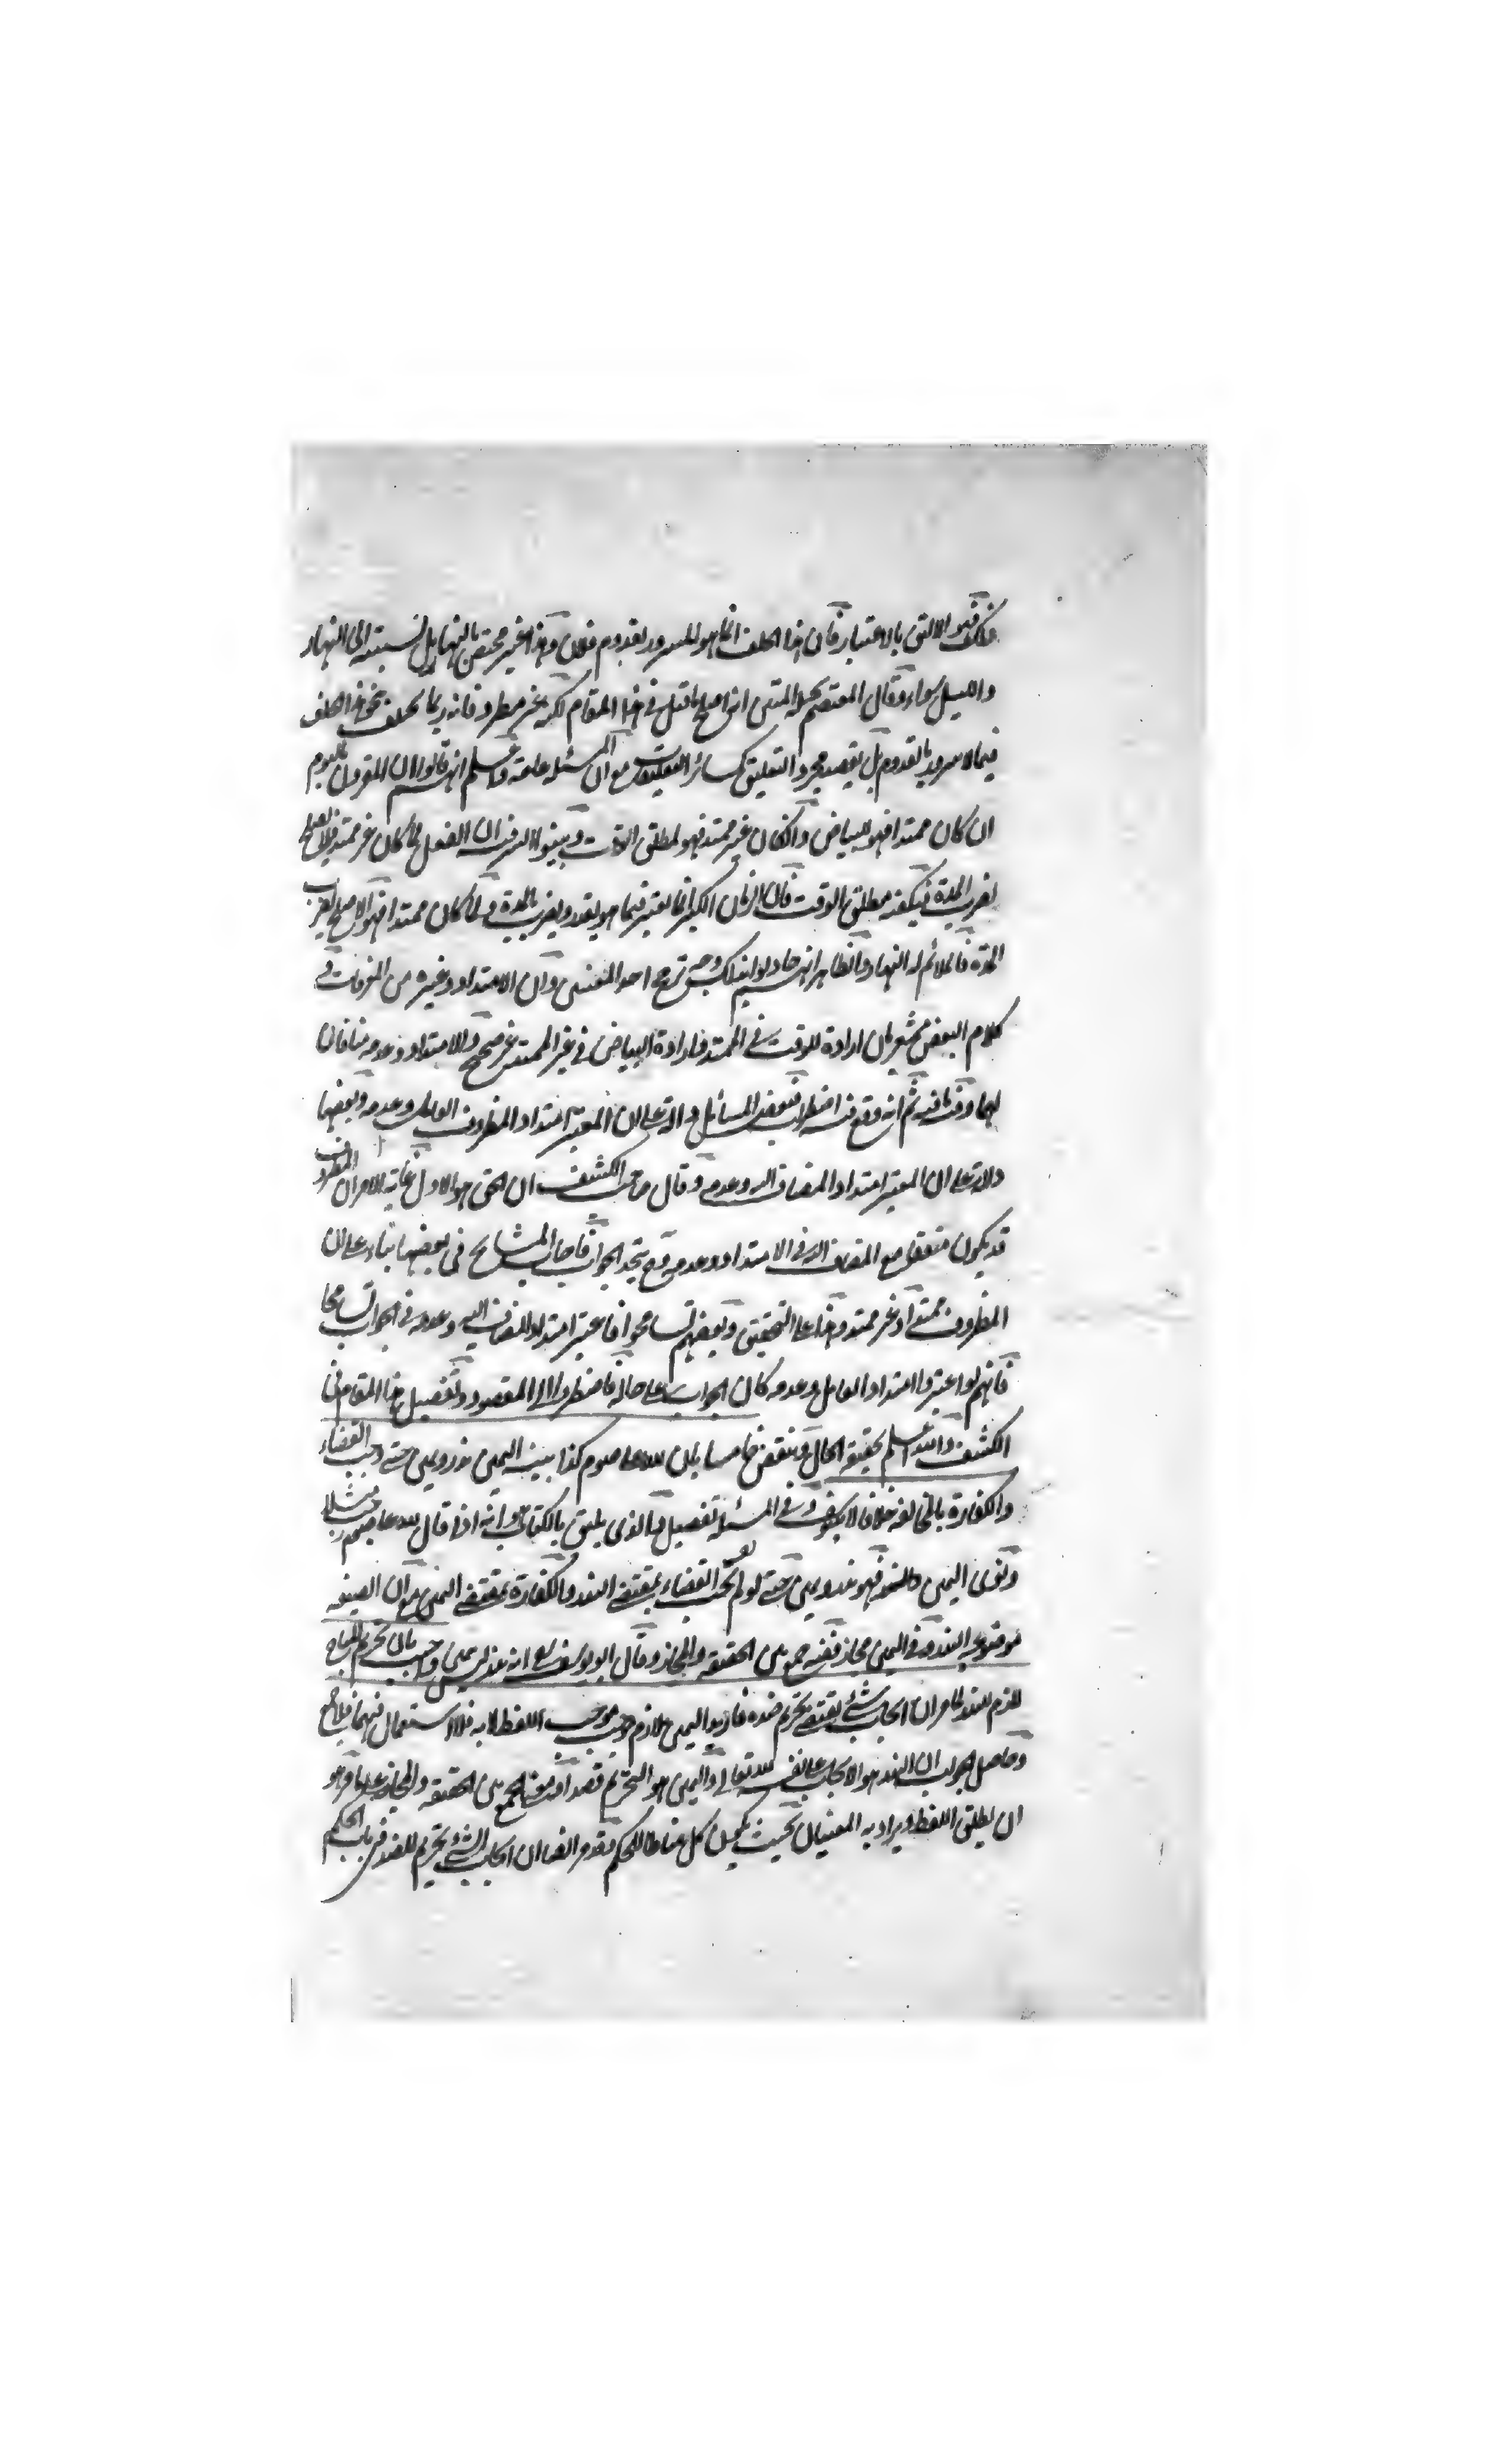 فهو الاليق بالاعتبار فان هذا الحلف انما هو للسرور بقدوم فلان وهذا غير مختص بالنهار بل نسبته الى النهار
والليل سواء وقال المعتصم بحبله المتين اصلح ما قيل في هذا المقام لكنه غير مطرد فانه ربما يحلف بنحو هذا الحلف
فيما لا سرور بالقدوم بل يقصد مجرد التعليق كسائر التعليقات مع ان المسئلة عامة واعلم انهم قالوا ان المقرون باليوم
ان كان ممتدا فهو للبياض وان كان غير ممتد فهو لمطلق الوقت وبينوا ان الفعل لما كان غير ممتد فلا يصلح
لضرب المدة فيكفيه مطلق الوقت فان الزمان انما يعتبر فيما هو يقدر ويضرب بالمدة ولما كان ممتدا فهو الاصلح لضرب
المدة فالملائم له النهار والظاهر انهم حاولوا بذلك وجه ترجيح احد المعنيين وان الامتداد وغيره من
كلام البعض مشعر بان ارادة الوقت في الممتد وارادة البياض في غير الممتد غير صحيح والامتداد وعدمه منافان
لهما وفيه ما فيه ثم انه وقع فيه اضطراب فبعض المسائل دالة على ان المعتبر امتداد المظروف العامل وعدمه وبعضها
دالة على ان المعتبر امتداد المضاف اليه وعدمه وقال صاحب الكشف ان الحق هو الاول غاية الامر ان المظروف
قد يكون متفقا مع المضاف اليه في الامتداد وعدمه ويتحد الجواب فاجاب المشايخ في بعضها بناء على ان
المظروف ممتد او غير ممتد وهذا على التحقيق وبعضهم تسامحوا فاعتبر امتداد المضاف اليه وعدمه في الجواب تسامحا
فانهم لو اعتبروا امتداد العامل وعدمه كان الجواب على حاله فاضطروا الى المقصود وتفصيل هذا المقام في
الكشف والله اعلم بحقيقة الحال وينقض خامسا بان لله علي صوم كذا بنية اليمين نذر ويمين حتى وجب القضاء
والكفارة بالمخالفة خلافا لابي يوسف وفي المسئلة تفصيل والذي يليق بالكتاب هو انه اذا قال لله علي صوم رجب مثلا
ونوى اليمين والنذر فهو نذر ويمين حتى لو لم يصم يجب القضاء بمقتضى النذر والكفارة بمقتضى اليمين مع ان الصيغة
موضوعة للنذر وفي اليمين مجاز ففيه جمع بين الحقيقة والمجاز وقال ابو يوسف انه نذر ليس بيمين واجيب بان تحريم المباح
لازم للنذر لما مر ان ايجاب شئ يقتضي تحريم ضده فاريد اليمين بلازم موجب اللفظ لا به فلا استعمال فيهما فلا جمع
وحاصل الجواب ان النذر هو الايجاب على نفسه لله تعالى واليمين هو التحريم قصدا الجمع بين الحقيقة والمجاز على ما مر هو
ان يطلق اللفظ ويراد به المعنيان بحيث يكون كل مناطا للحكم وقد مر ايضا ان ايجاب الشئ تحريم للضد في باب الحكم